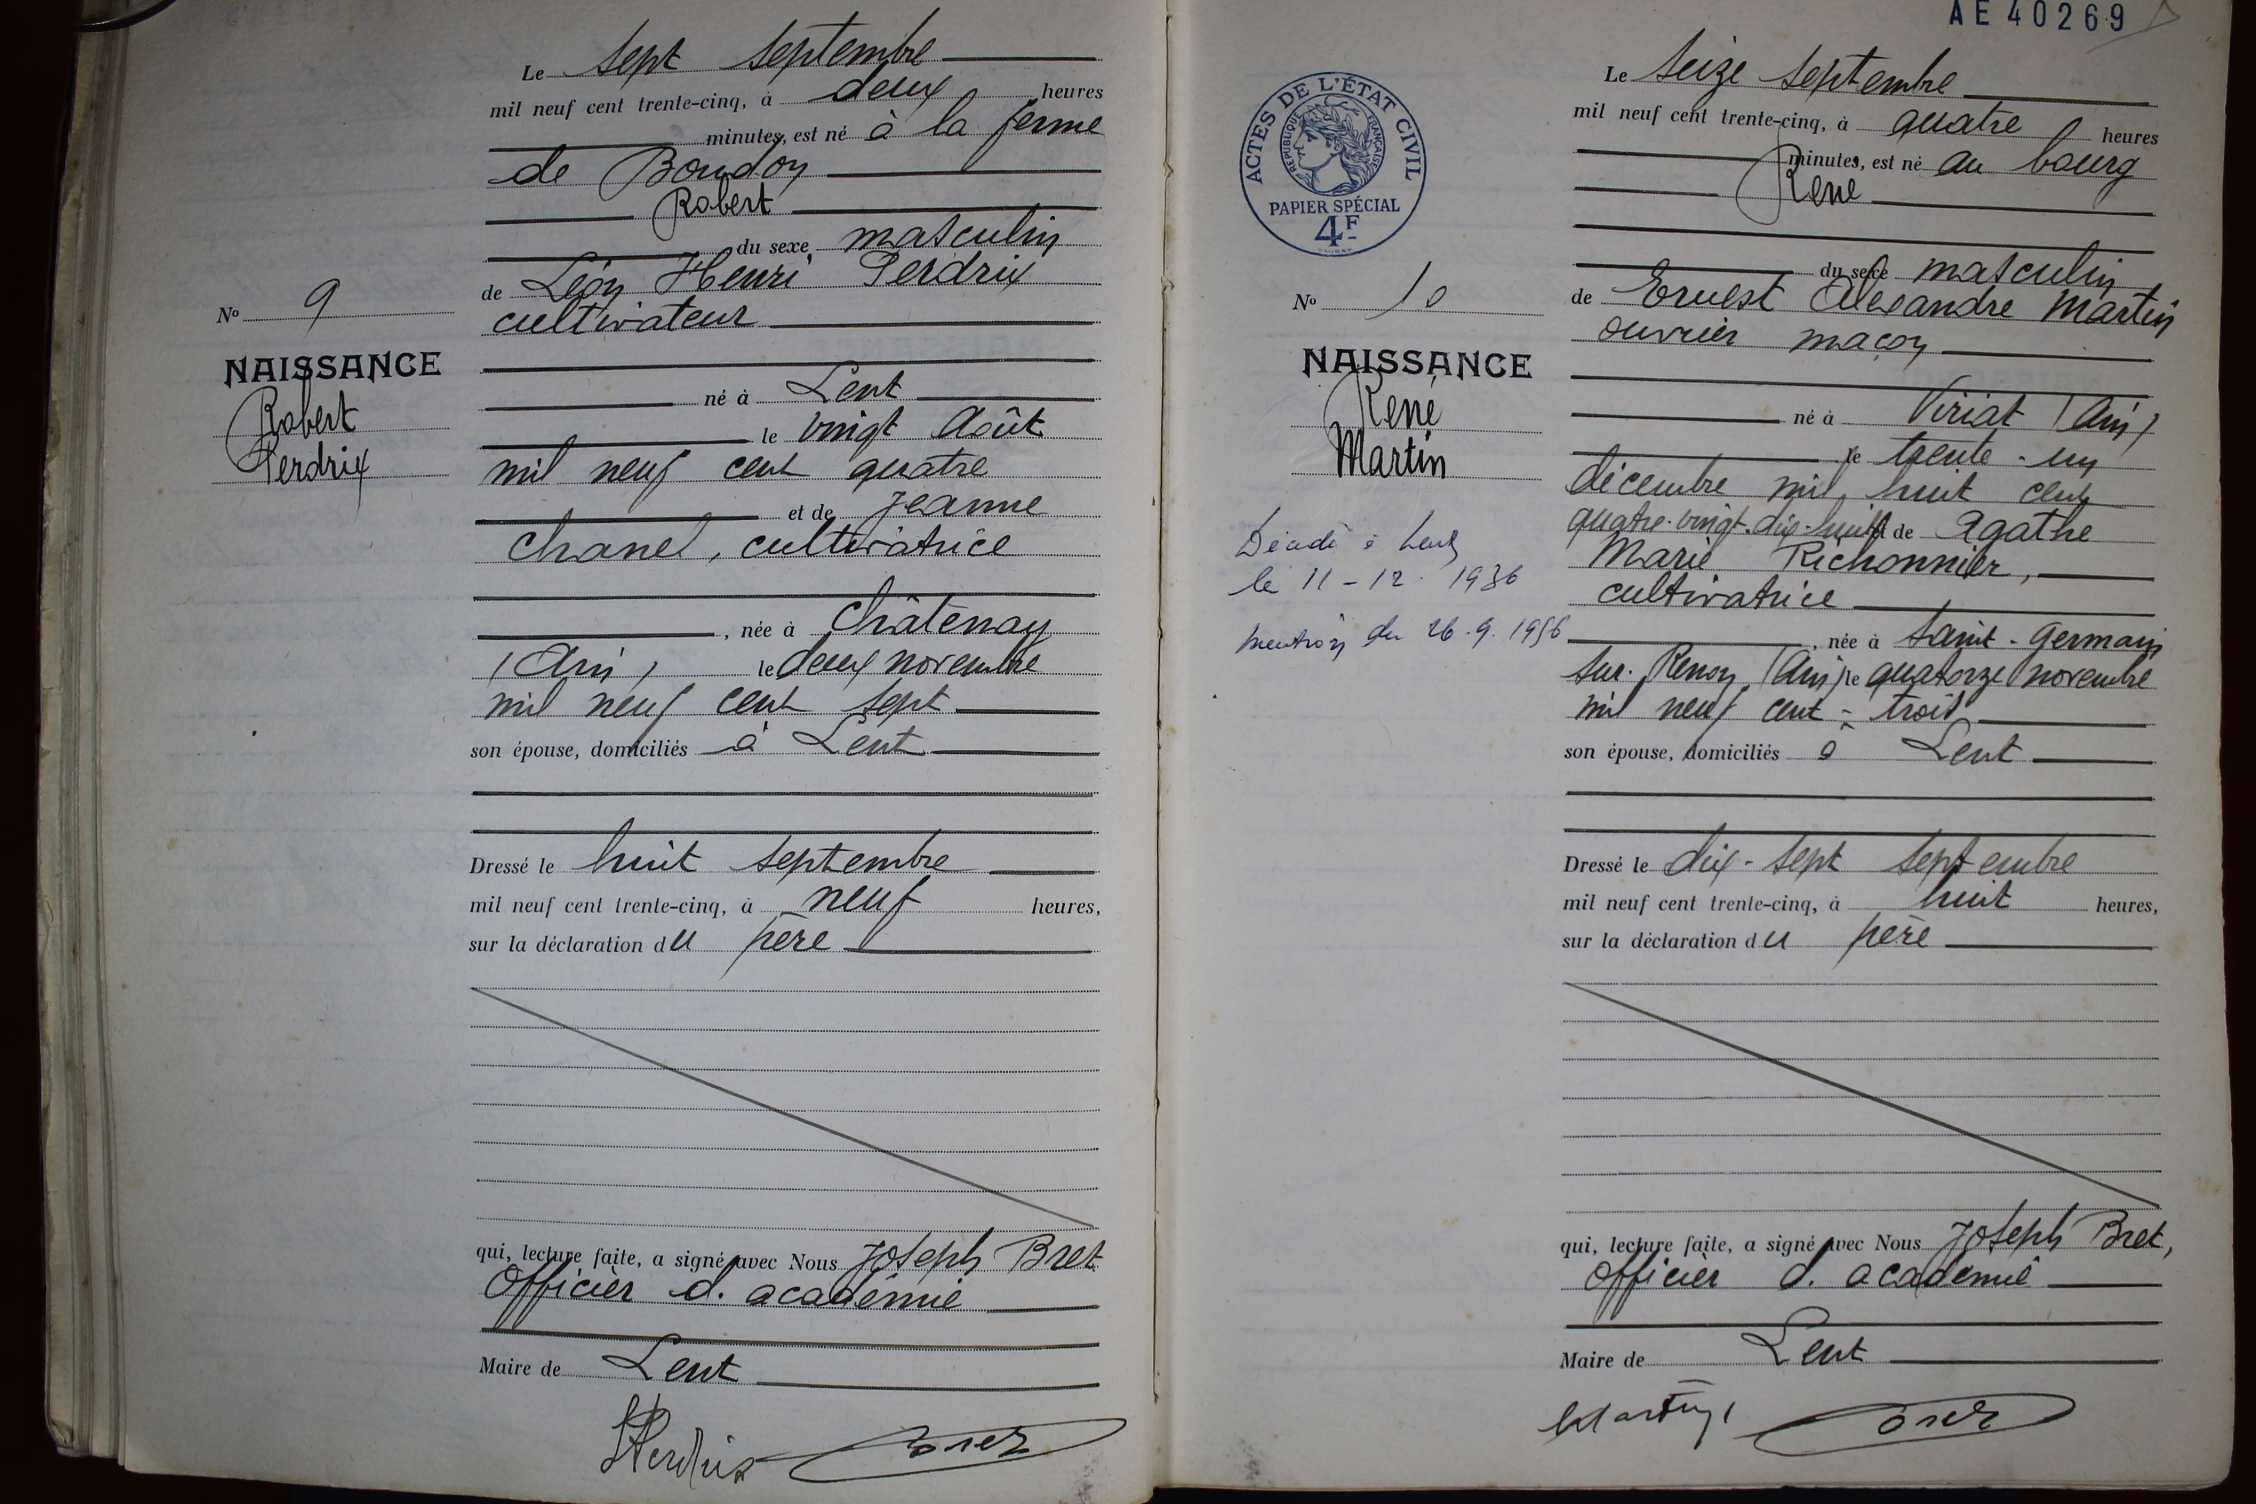 Le sept septembre
mil neuf cent trente-cinq, à deux heures
minutes, est né à la ferme
de Boudon
Robert
du sexe masculin
de Léon Henri Perdrix
cultivateur
né à Lent
le vingt Août
mil neuf cent quatre
et de Jeanne
Chanel, cultivatrice
, née à Châtenay
(Ain) le deux novembre
mil neuf cent sept
son épouse, domiciliés à Lent
Dressé le huit septembre
mil neuf cent trente-cinq, à neuf heures,
sur la déclaration du père
qui, lecture faite, a signé avec Nous Joseph Bret
Officier d'académie
Maire de Lent
HPerdrix Bret
No 9
NAISSANCE
Robert
Perdrix
AE 40269
ACTES DE L'ÉTAT CIVIL
RÉPUBLIQUE FRANÇAISE
PAPIER SPÉCIAL
4F
No 10
NAISSANCE
René
Martin
Décédé à Lent
le 11-12-1936
mention du 26.9.1956
Le seize septembre
mil neuf cent trente-cinq, à quatre heures
minutes, est né au bourg
René
du sexe masculin
de Ernest Alexandre Martin
ouvrier maçon
né à Viriat (Ain)
le trente-un
décembre mil huit cent
quatre-vingt-dix-huit et de Agathe
Marie Richonnier,
cultivatrice
, née à Saint-Germain
sur-Renon (Ain) le quatorze novembre
mil neuf cent-trois
son épouse, domiciliés à Lent
Dressé le dix-sept septembre
mil neuf cent trente-cinq, à huit heures,
sur la déclaration du père
qui, lecture faite, a signé avec Nous Joseph Bret,
Officier d'académie
Maire de Lent
Martin Bret